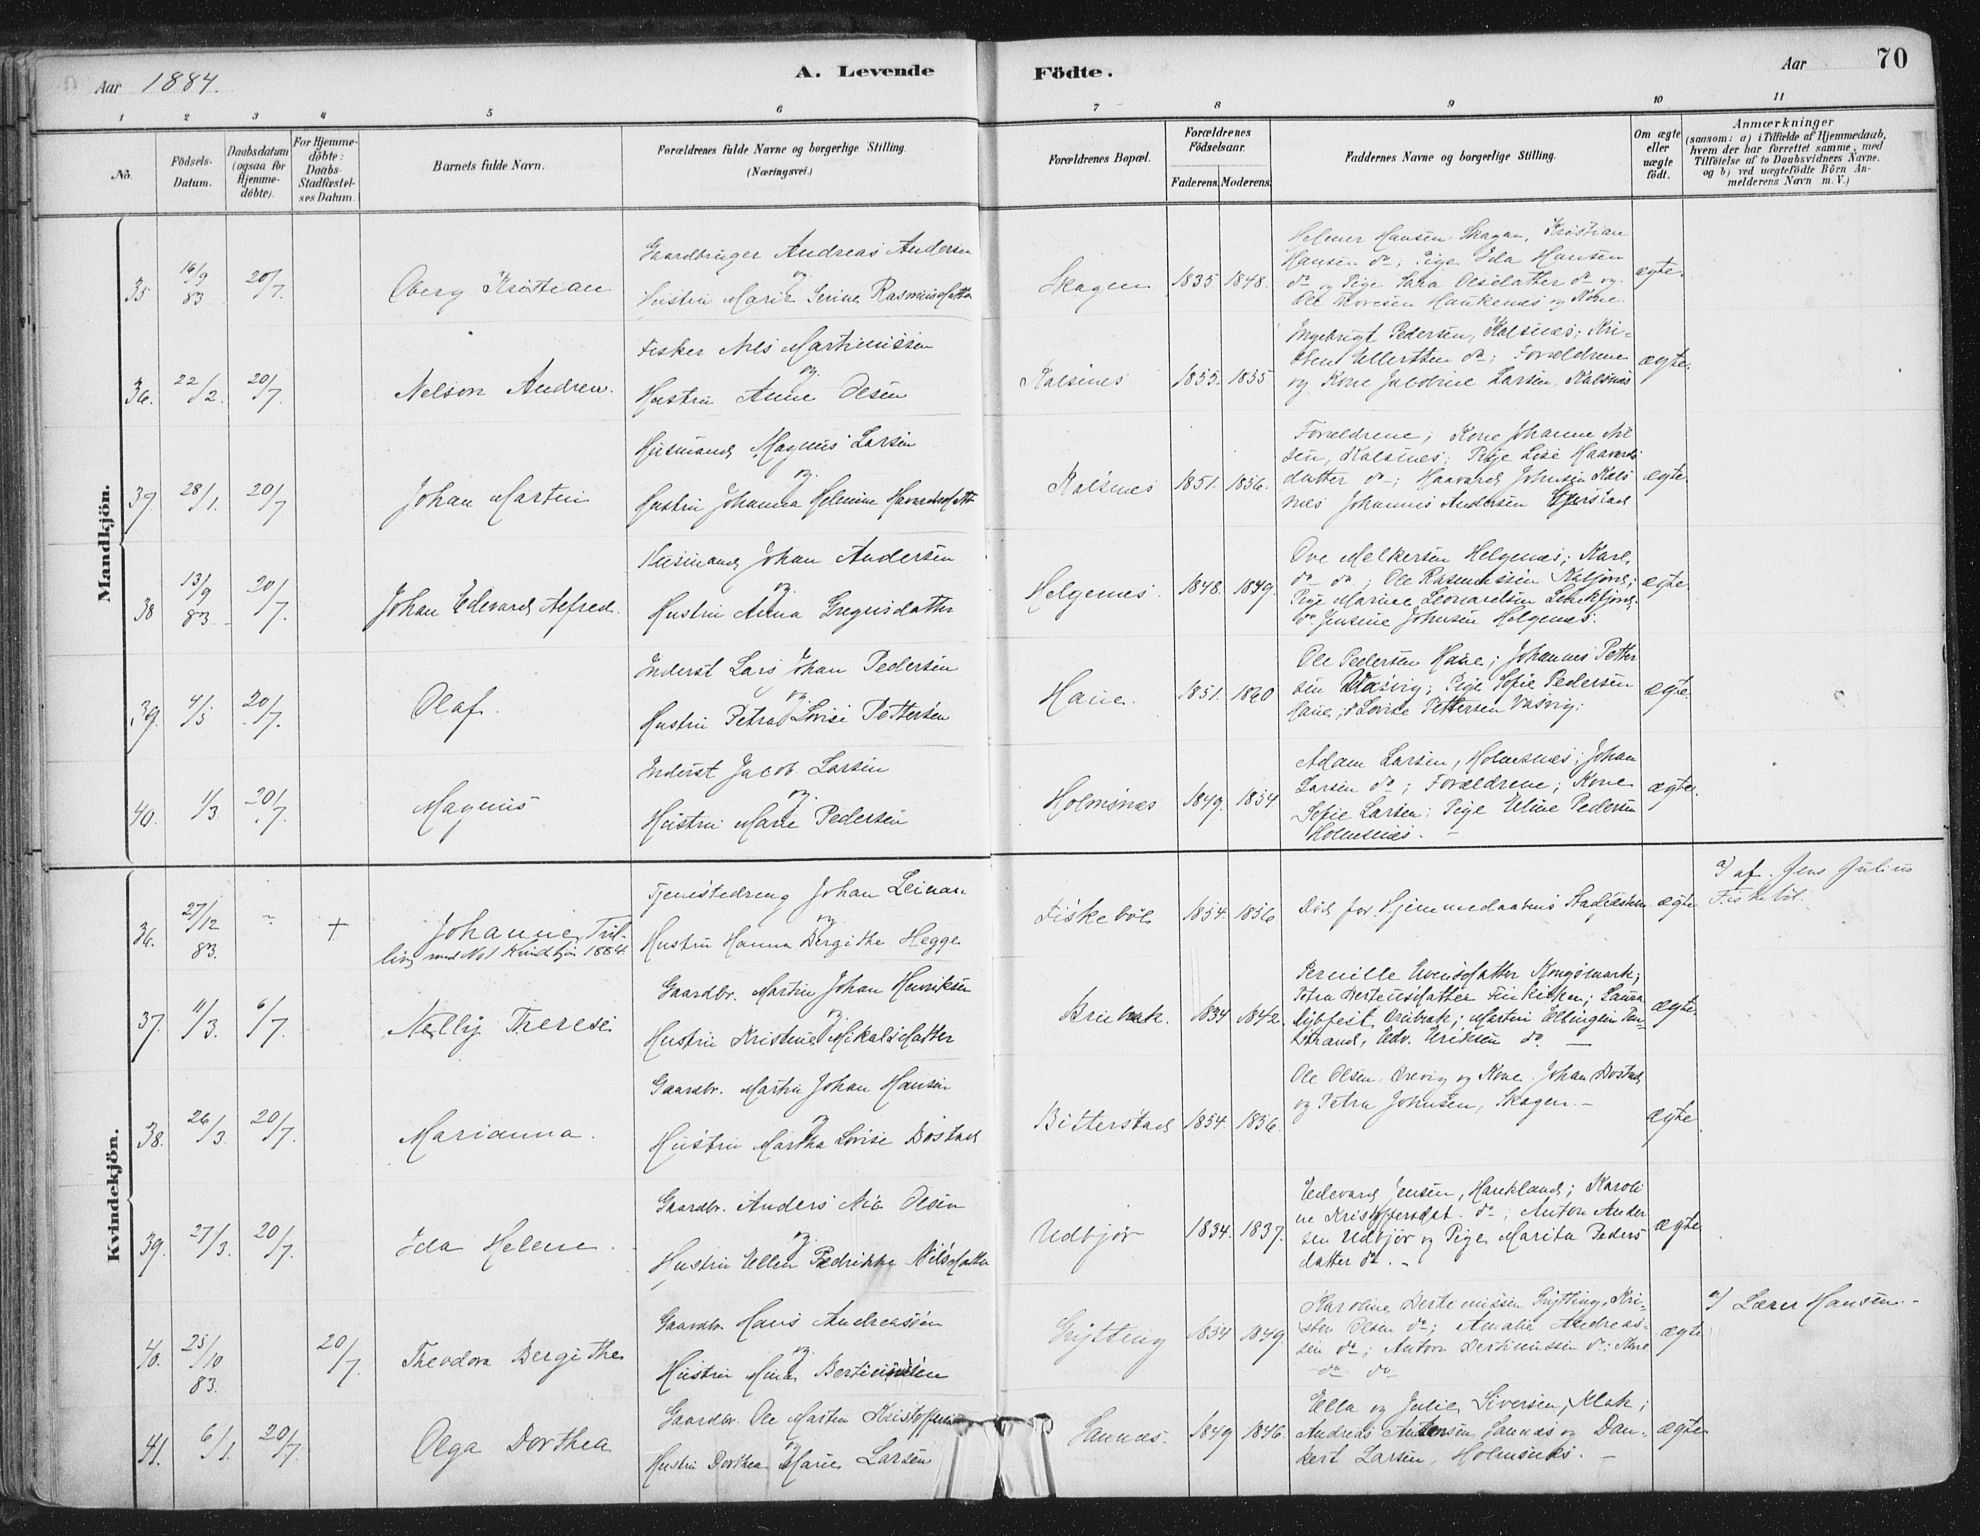 Aar 1884.
A. Levende
Födte.
Aar
70
1 2 3 4 5 6 7 8 9 10 11
No.
Födsels-
Datum.
Daabsdatum
(ogsaa for
Hjemme-
döbte).
For Hjemme-
döbte:
Daabs-
Stadfæstel-
ses Datum.
Barnets fulde Navn.
Forældrenes fulde Navne og borgerlige Stilling.
(Næringsvei.)
Forældrenes Bopæl.
Forældrenes
Födselsaar.
Faderens. Moderens.
Faddernes Navne og borgerlige Stilling.
Om ægte
eller
uægte
födt.
Anmærkninger
(saasom: a) i Tilfælde af Hjemmedaab,
hvem der har forrettet samme, med
Tilföielse af to Daabsvidners Navne.
og b) ved uægtefödte Börn An-
melderens Navn m. V.)
Mandkjön.
35 16/9 83 20/7. Oberg Kristian
Gaardbruger Andreas Andersen
og
Hustru Marie Serine Rasmusdatter
Skagen 1835 1848.
Helmer Hansen Skagen, Kristian
Hansen do; Pige Ida Hansen
do og Pige Sara Olesdatter do og
Ole Thoresen Haukenæs og Kone.
ægte.
36. 22/2. 20/7. Nelson Andrew.
Fisker Nils Martinussen
og
Hustru Anne Olsen
Kalsnes 1855. 1855
Ingebrigt Pedersen, Kalsnes; Kri-
do; Forældrene
og Kone Jakobine Larsen, Kalsnæs
ægte.
37. 28/1. 20/7 Johan Martin
Husmand Magnus Larsen
og.
Hustru Johanna Helmine Havardsdatter
Kalsnes 1851. 1856.
Forældrene; Kone Johanne Nil
sen, Kalsnes; Pige Lise Haavards
datter do; Haavard Johnsen Kals
nes Johannis Andersen
ægte.
38 13/9 83. 20/7. Johan Edevard Alfred.
Husmand Johan Andersen
og
Hustru Anna Gregusdatter
Helgenes. 1848. 1849.
Ove Melkersen Helgenæs; Karl
do do; Ole Rasmussen
Pige Marine Leonardsen
do Jensine Johnsen Helgenæs.
ægte.
39. 4/3 20/7. Olaf.
Inderst Lars Johan Pedersen
og
Hustru Petra Lovise Pettersen
Haue. 1851. 1860
Ole Pedersen Haue; Johannes Petter
sen Vasvig; Pige Sofie Pedersen
Haue; do Lovise Pettersen Vasvig.
ægte.
40. 1/3 20/7. Magnus
Inderst Jacob Larsen
og.
Hustru Marie Pedersen
Holmsnæs 1849. 1854
Adam Larsen, Holmsnæs; Johan
Larsen do; Forældrene; Kone
Sofie Larsen; Pige Eline Pedersen
Holmsnæs. –
ægte.
Kvindekjön.
36. 27/12 83. " + Johanne, Tril-
ling med No 1 Kvindekjön 1884.
Tjenestedreng Johan Leinan
og
Hustru Hanna Bergithe Hegge
Fiskebøl 1854. 1856.
Død før Hjemmedaabens Stadfæstelse
ægte
a) af. Jens Julius
Fiskebøl.
37. 11/3. 6/7. Nelly Therese
Gaardbr. Martin Johan Henriksen
og.
Hustru Kristine Mikalsdatter
Breibak. 1834 1842.
Pernille Evensdatter Kongsmark;
Petra Bertensdatter; Laura
Breibak; Martin Ellingsen
Edv. Eriksen do. –
ægte.
38. 26/3. 20/7. Marianna.
Gaardbr. Martin Johan Hansen
og
Hustru Martha Lovise Bostad
Bitterstad 1854. 1856.
Ole Olsen og Kone. Johan Bostad
og Petra Johnsen, Skagen. –
ægte.
39. 27/3. 20/7. Ida Helene.
Gaardbr. Anders Nic Olsen
og
Hustru Ellen Pedrikke Nilsdatter
Udbjør 1834. 1837.
Edevard Jensen, Haukland; Karoli
ne Kristoffersdat. do; Anton Ander
sen Udbjør og Pige Marita Peders
datter do. –
ægte
40. 25/10 83. 20/7. Theodora Bergithe
Gaardbr. Hans Andreassen
og.
Hustru Mina Bertinussen
Grytting 1854 1849.
Karoline Bertinussen Grytting, Kri-
sten Olsen do; Amalie Andreas-
sen do; Anton Bertinussen do;
do do
ægte
a) Lærer Hansen. –
41. 6/1. 20/7. Olga Dorthea
Gaardbr. Ole Martin Kristoffersen
og
Hustru Dorthea Marie Larsen
Sannæs. 1849 1846.
Ella og Julie Siversen, Klak;
Andreas Andersen Sannæs og Dan-
kert Larsen, Holmsnæs. –
ægte.